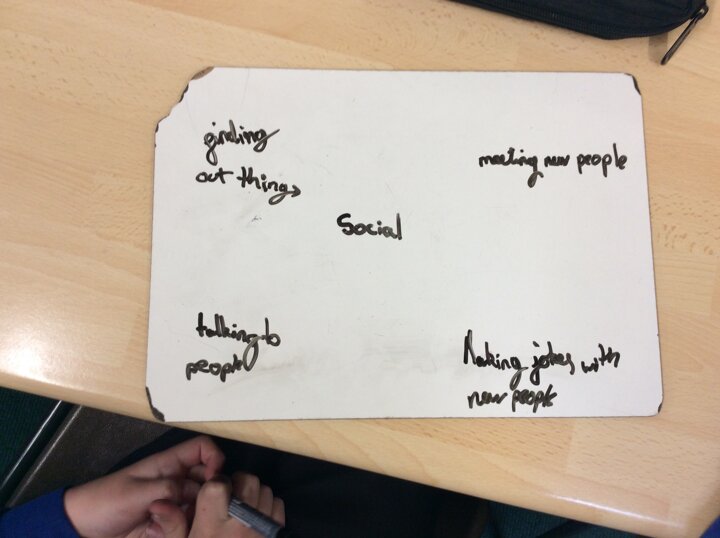 finding
out things
meeting new people
Social
talking to
people
Making jokes with
new people